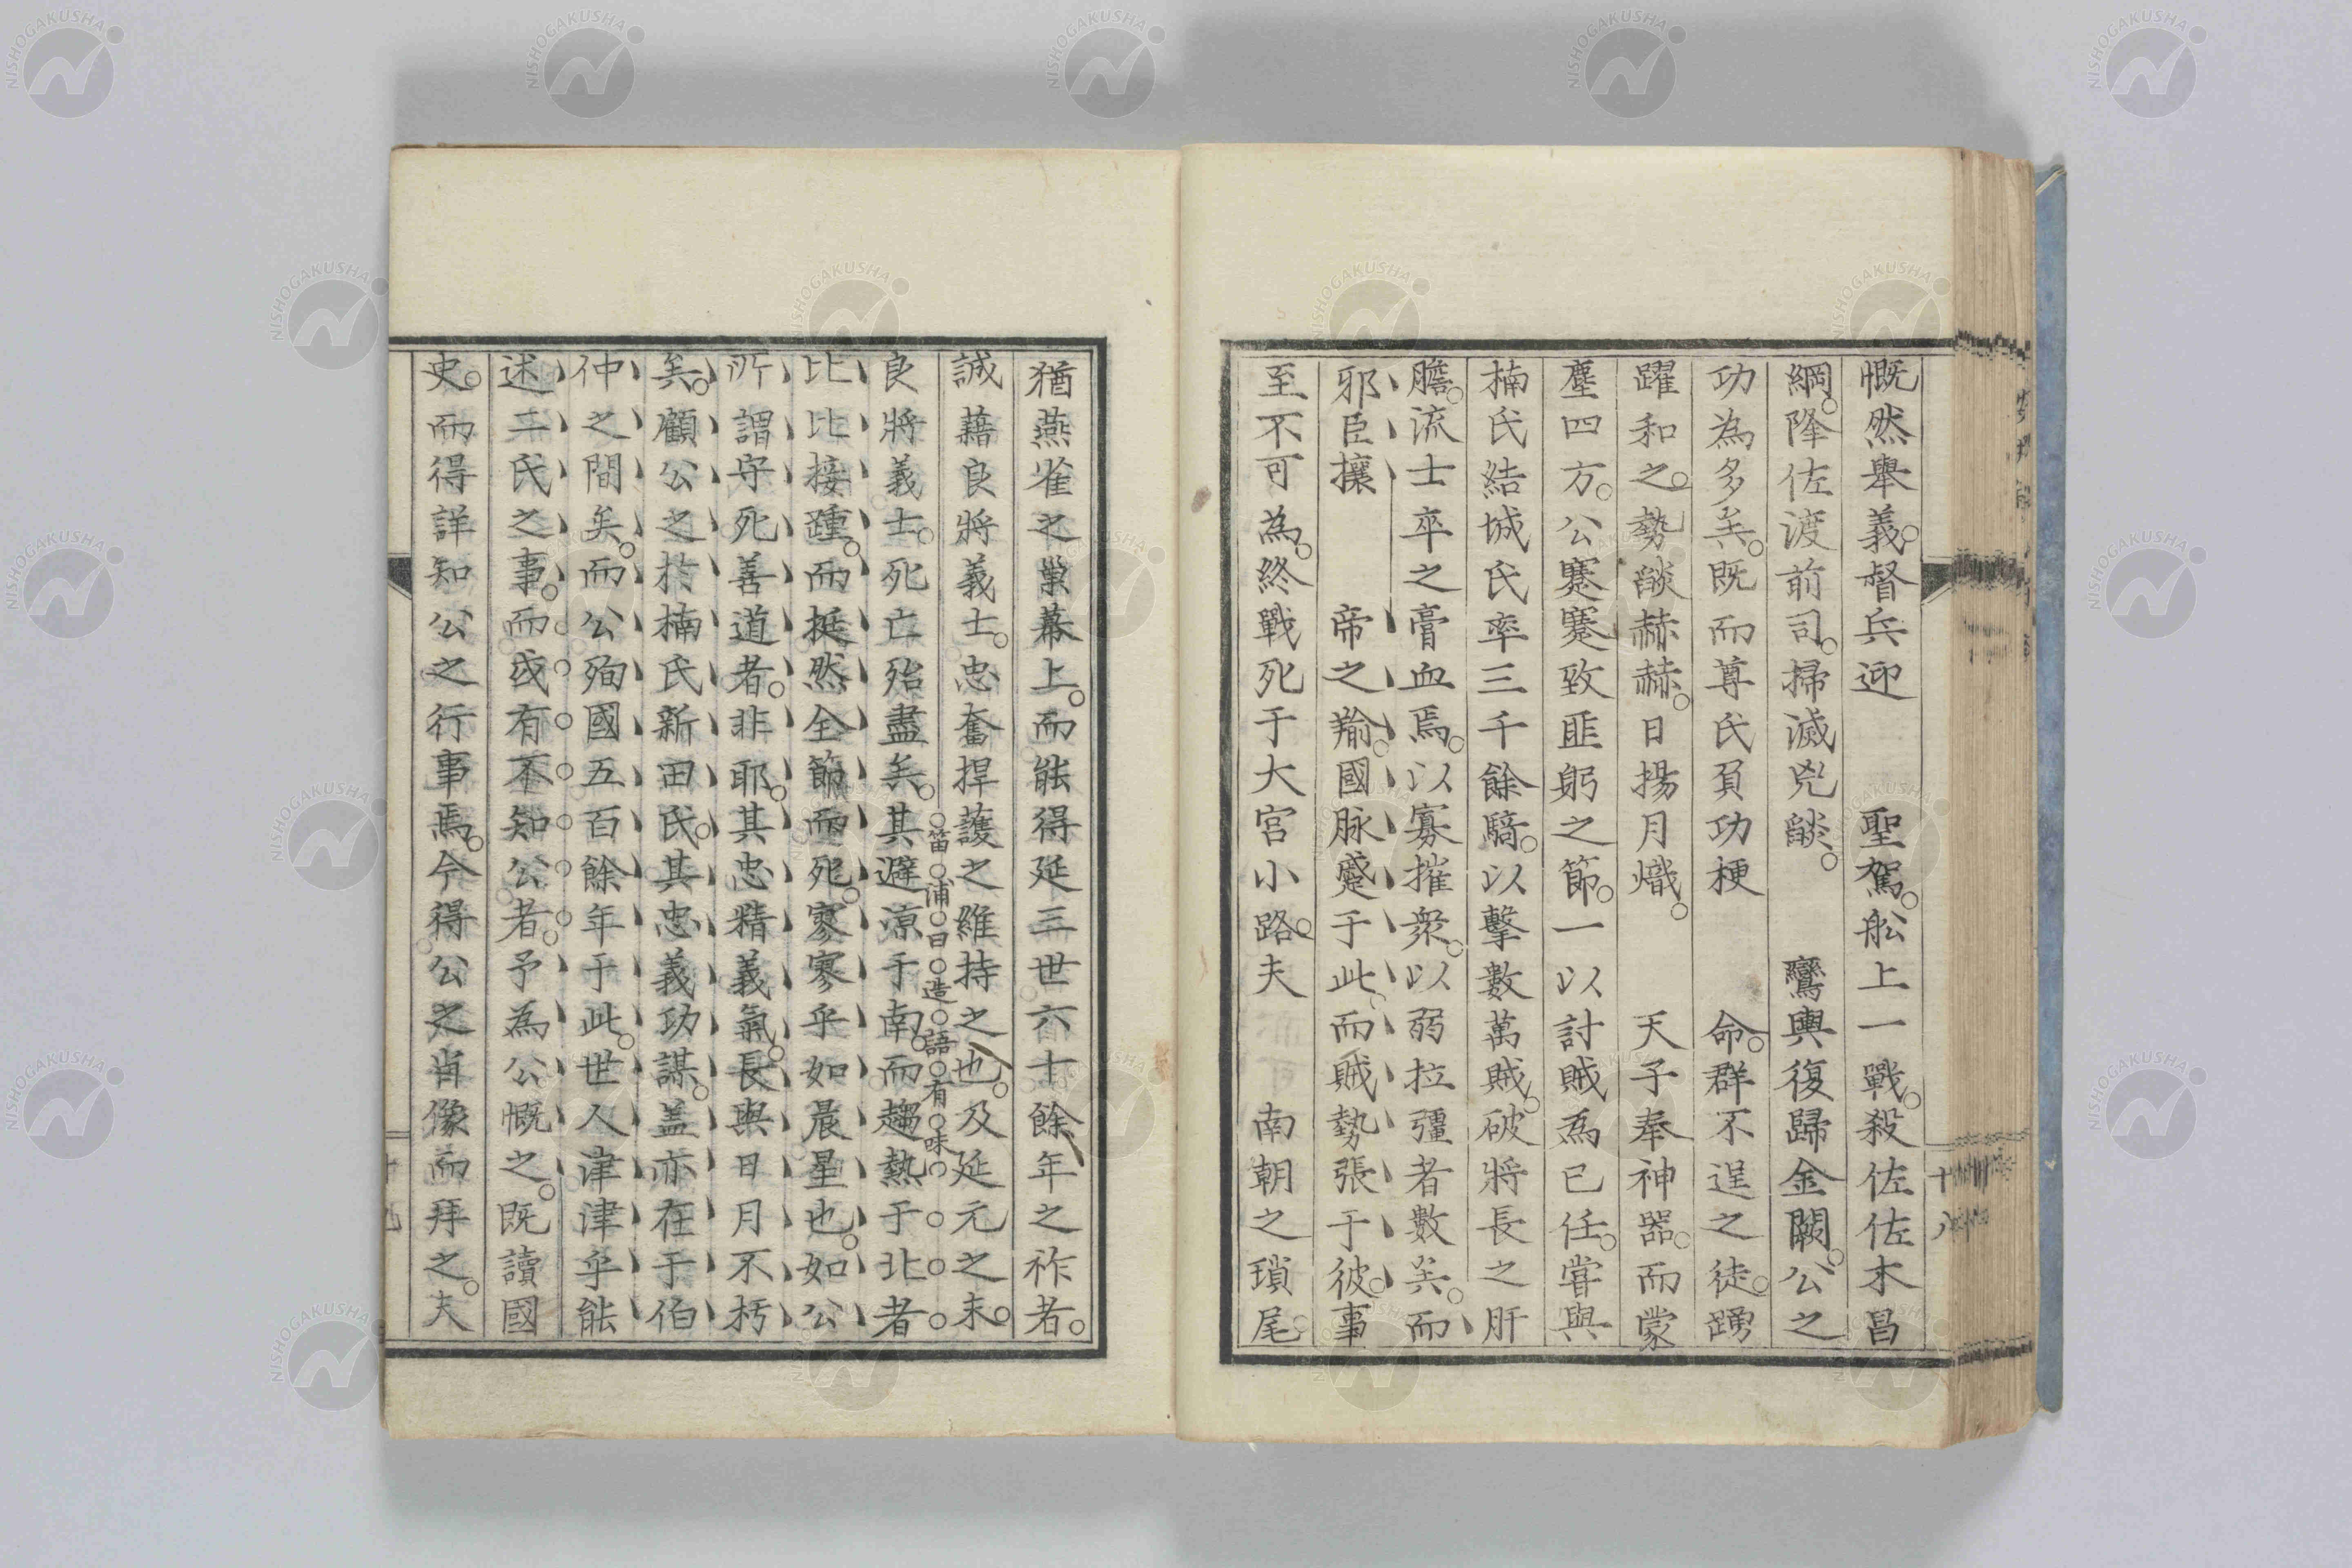 慨然舉義。督兵迎　聖駕。舩上一戰。殺佐佐木昌
綱。降佐渡前司。掃滅兇燄。　鸞輿復歸金闕。公之
功為多矣。既而尊氏負功梗　命。群不逞之徒。踴
躍和之。勢燄赫赫。日揚月熾。　天子奉神器。而蒙
塵四方。公蹇蹇致匪躬之節。一以討賊為已任。嘗與
楠氏結城氏率三千餘騎。以擊數萬賊。破將長之肝
膽。流士卒之膏血焉。以寡摧衆。以弱拉彊者數矣。而
邪臣攘　帝之羭。國脉蹙于此。而賊勢張于彼。事
至不可為。終戰死于大宮小路。夫　南朝之瑣尾。
十八
猶燕雀之巢幕上。而能得延三世六十餘年之祚者。
誠藉良將義士。忠奮捍護之維持之也。及延元之末。
良將義士。死亡殆盡矣。其避涼于南。而趨熱于北者
笛浦曰造語有味
比比接踵。而挺然全節而死。寥寥乎如晨星也。如公
所謂守死善道者。非耶。其忠精義氣。長與日月不朽
矣。顧公之於楠氏新田氏。其忠義功謀。盖亦在于伯
仲之間矣。而公殉國五百餘年于此。世人津津乎能
述二氏之事。而或有不知公者。予為公慨之。既讀國
史。而得詳知公之行事焉。今得公之肖像而拜之。夫